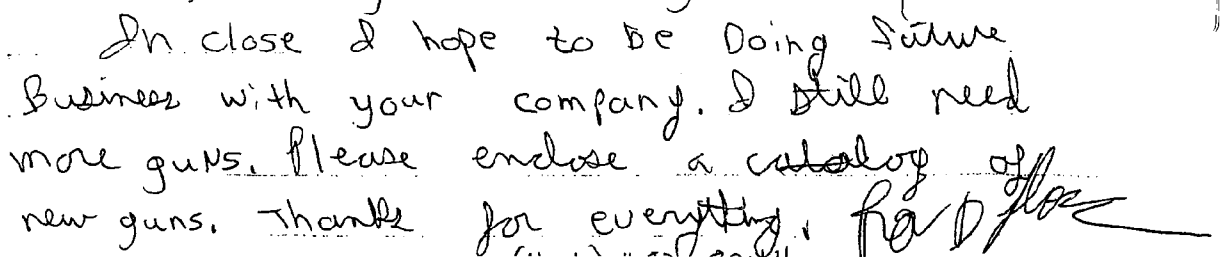 In close I hope to be Doing future
Business with your company. I still need
more guns. Please enclose a catalog of
new guns. Thanks for everything.